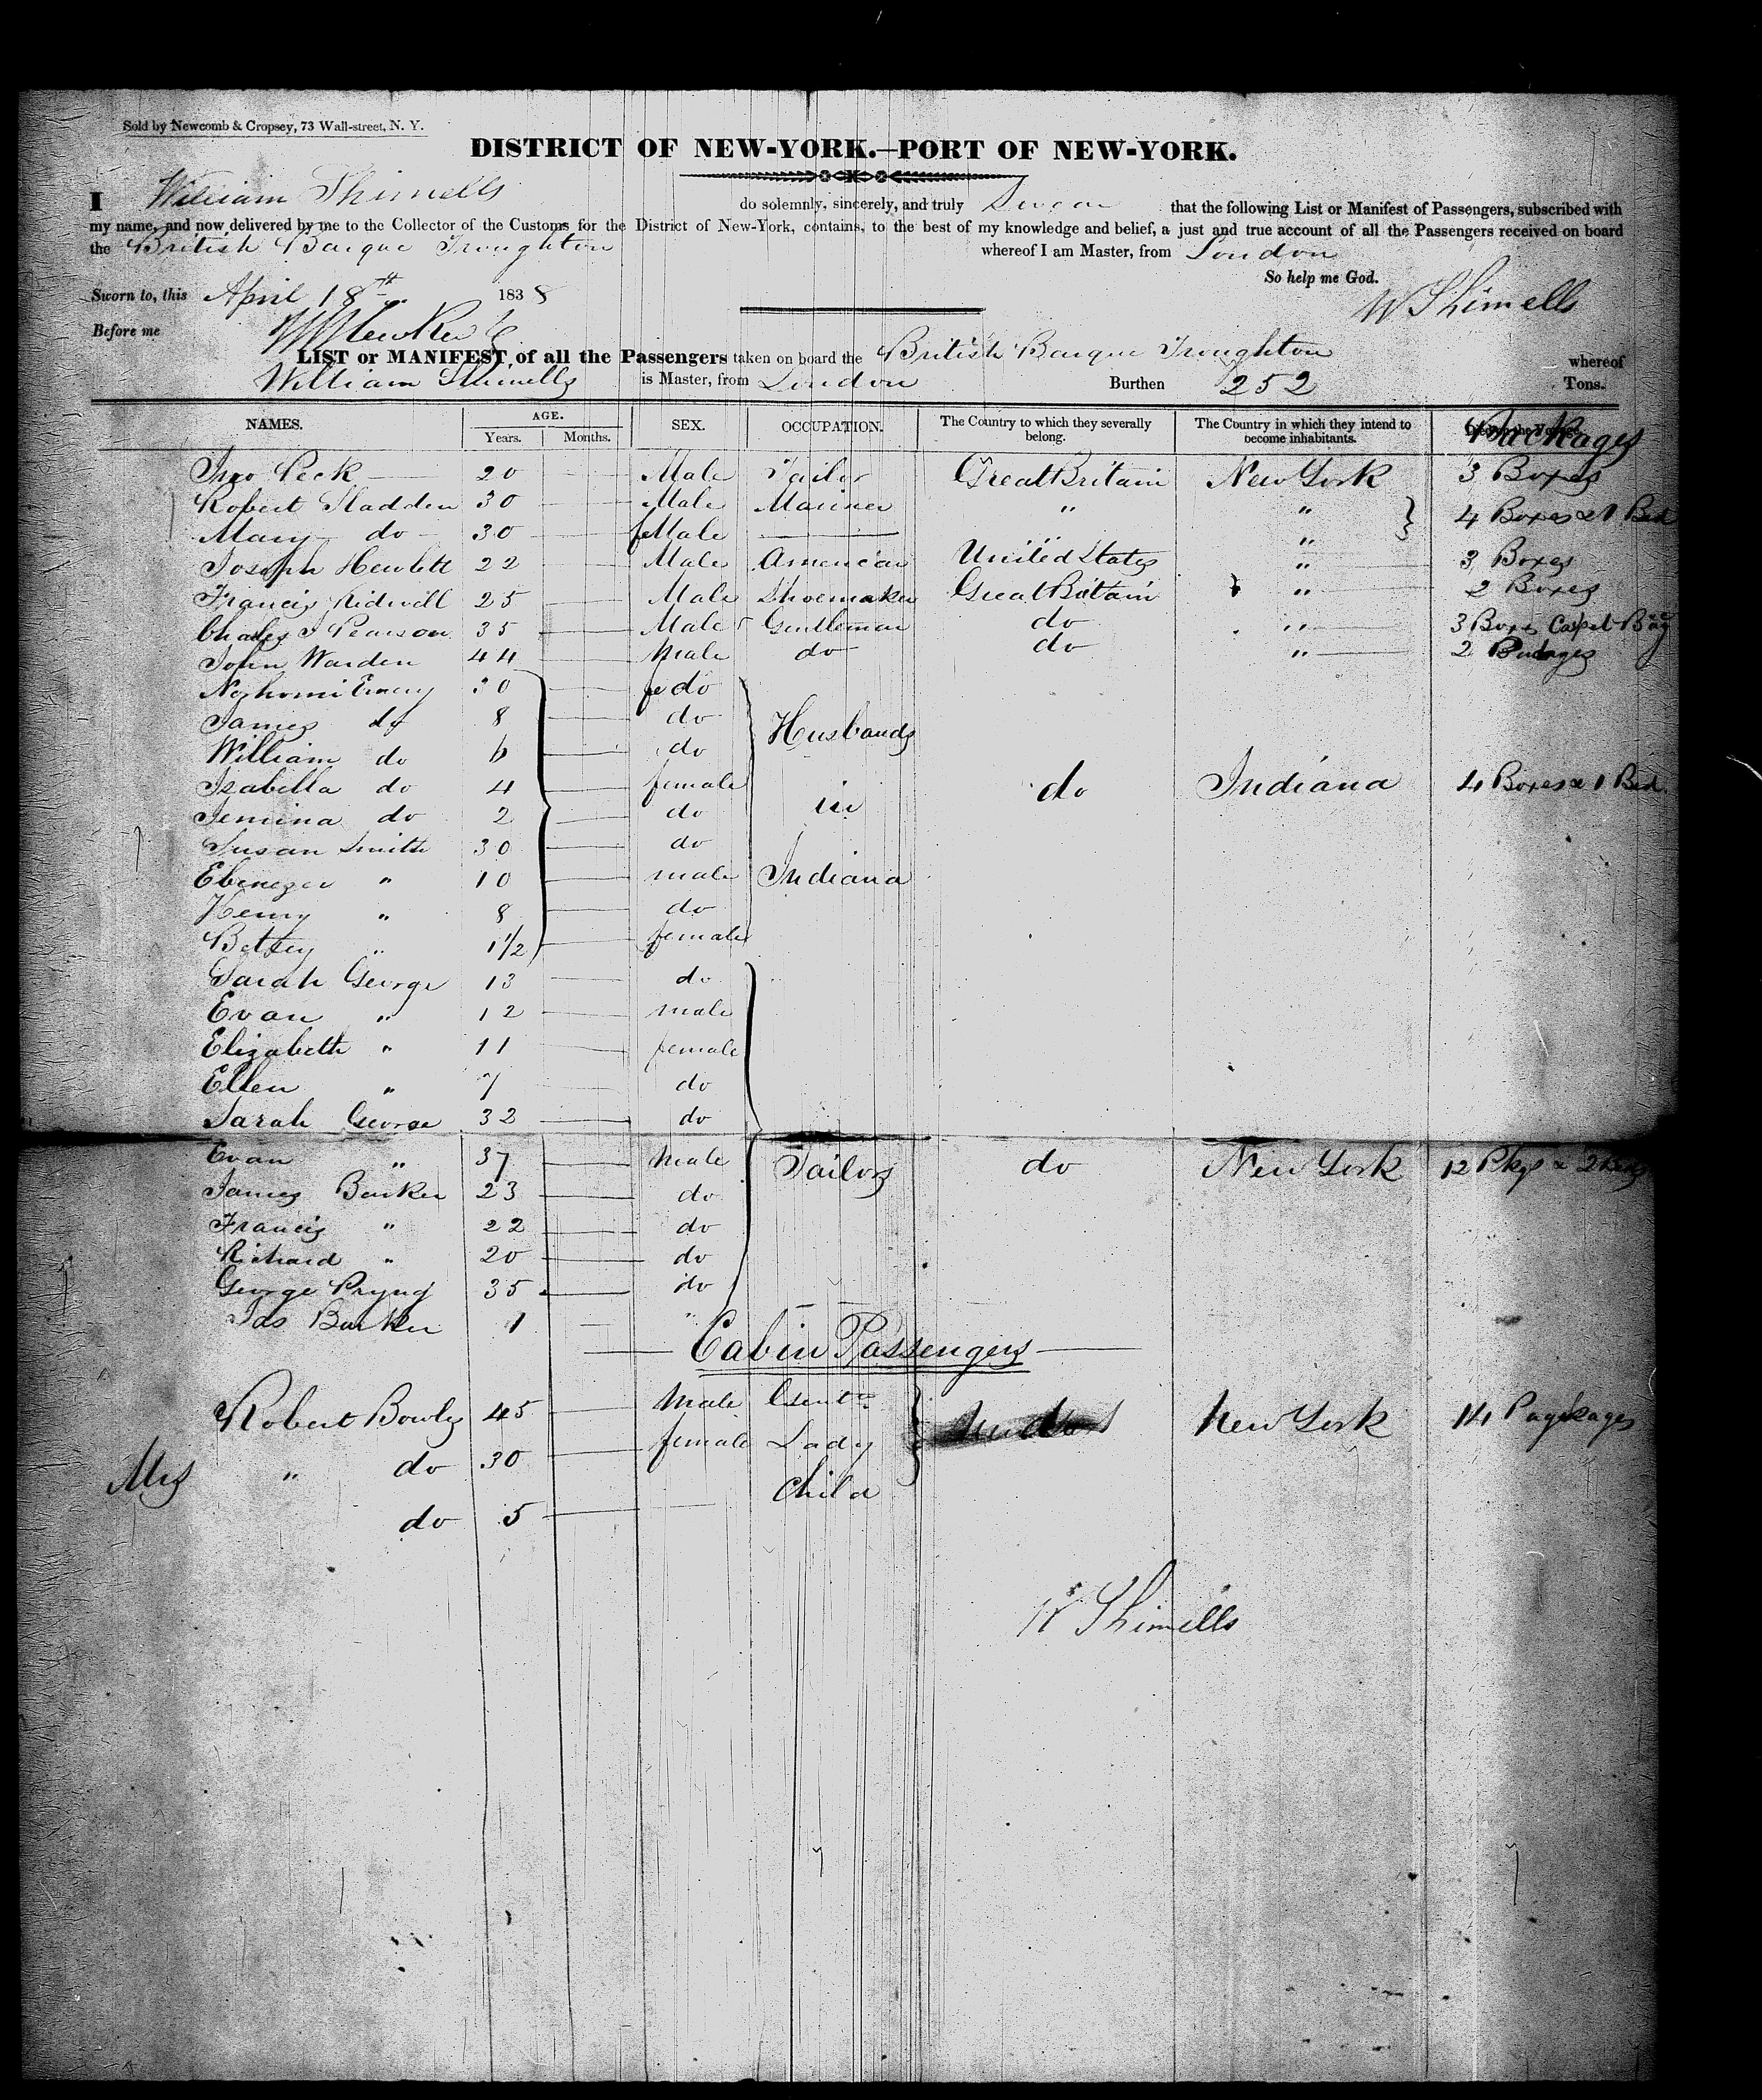 Sold by Newcomb & Cropsey, 73 Wall-street, N. Y.
DISTRICT OF NEW-YORK.—PORT OF NEW-YORK.
I William Shimells do solemnly, sincerely, and truly Swear that the following List or Manifest of Passengers, subscribed with
my name, and now delivered by me to the Collector of the Customs for the District of New-York, contains, to the best of my knowledge and belief, a just and true account of all the Passengers received on board
the British Barque Troughton whereof I am Master, from London
So help me God.
Sworn to, this April 18th 1838 W Shimells
Before me
LIST or MANIFEST of all the Passengers taken on board the British Barque Troughton whereof
William Shimells is Master, from London Burthen 252 Tons.
NAMES. AGE. Years. Months. SEX. OCCUPATION. The Country to which they severally belong. The Country in which they intend to become inhabitants. Packages
Jno Peck 20 Male Tailor Great Britain New York 3 Boxes
Robert Sladden 30 Male Mariner " " 4 Boxes & 1 Bed
Mary do 30 feMale " "
Joseph Hewlett 22 Male American United States " 3 Boxes
Francis Ridwill 25 Male Shoemaker Great Britain " 2 Boxes
Charles J Pearson 35 Male Gentleman do " 3 Boxes Carpet Bag
John Warden 44 Male do do " 2
Emery 30 fe do
James do 8 do Husbands
William do 6 do
Isabella do 4 female do Indiana 4 Boxes & 1 Bed
Jemina do 2 do in
Susan Smith 30 do
Ebenezer " 10 male Indiana
Henry " 8 do
Betsey " 1 1/2 female
Sarah George 13 do
Evan " 12 male
Elizabeth " 11 female
Ellen " 7 do
Sarah George 32 do
Evan " 37 Male Tailors do New York 12 Pkgs & 2
James Barker 23 do
Francis " 22 do
Richard " 20 do
George Pryng 35 do
Jas Barker 1 "
Cabin Passengers
Robert Bowly 45 Male Gent New York 14 Pagckages
Mrs " do 30 female Lady
do 5 Child
W Shimells